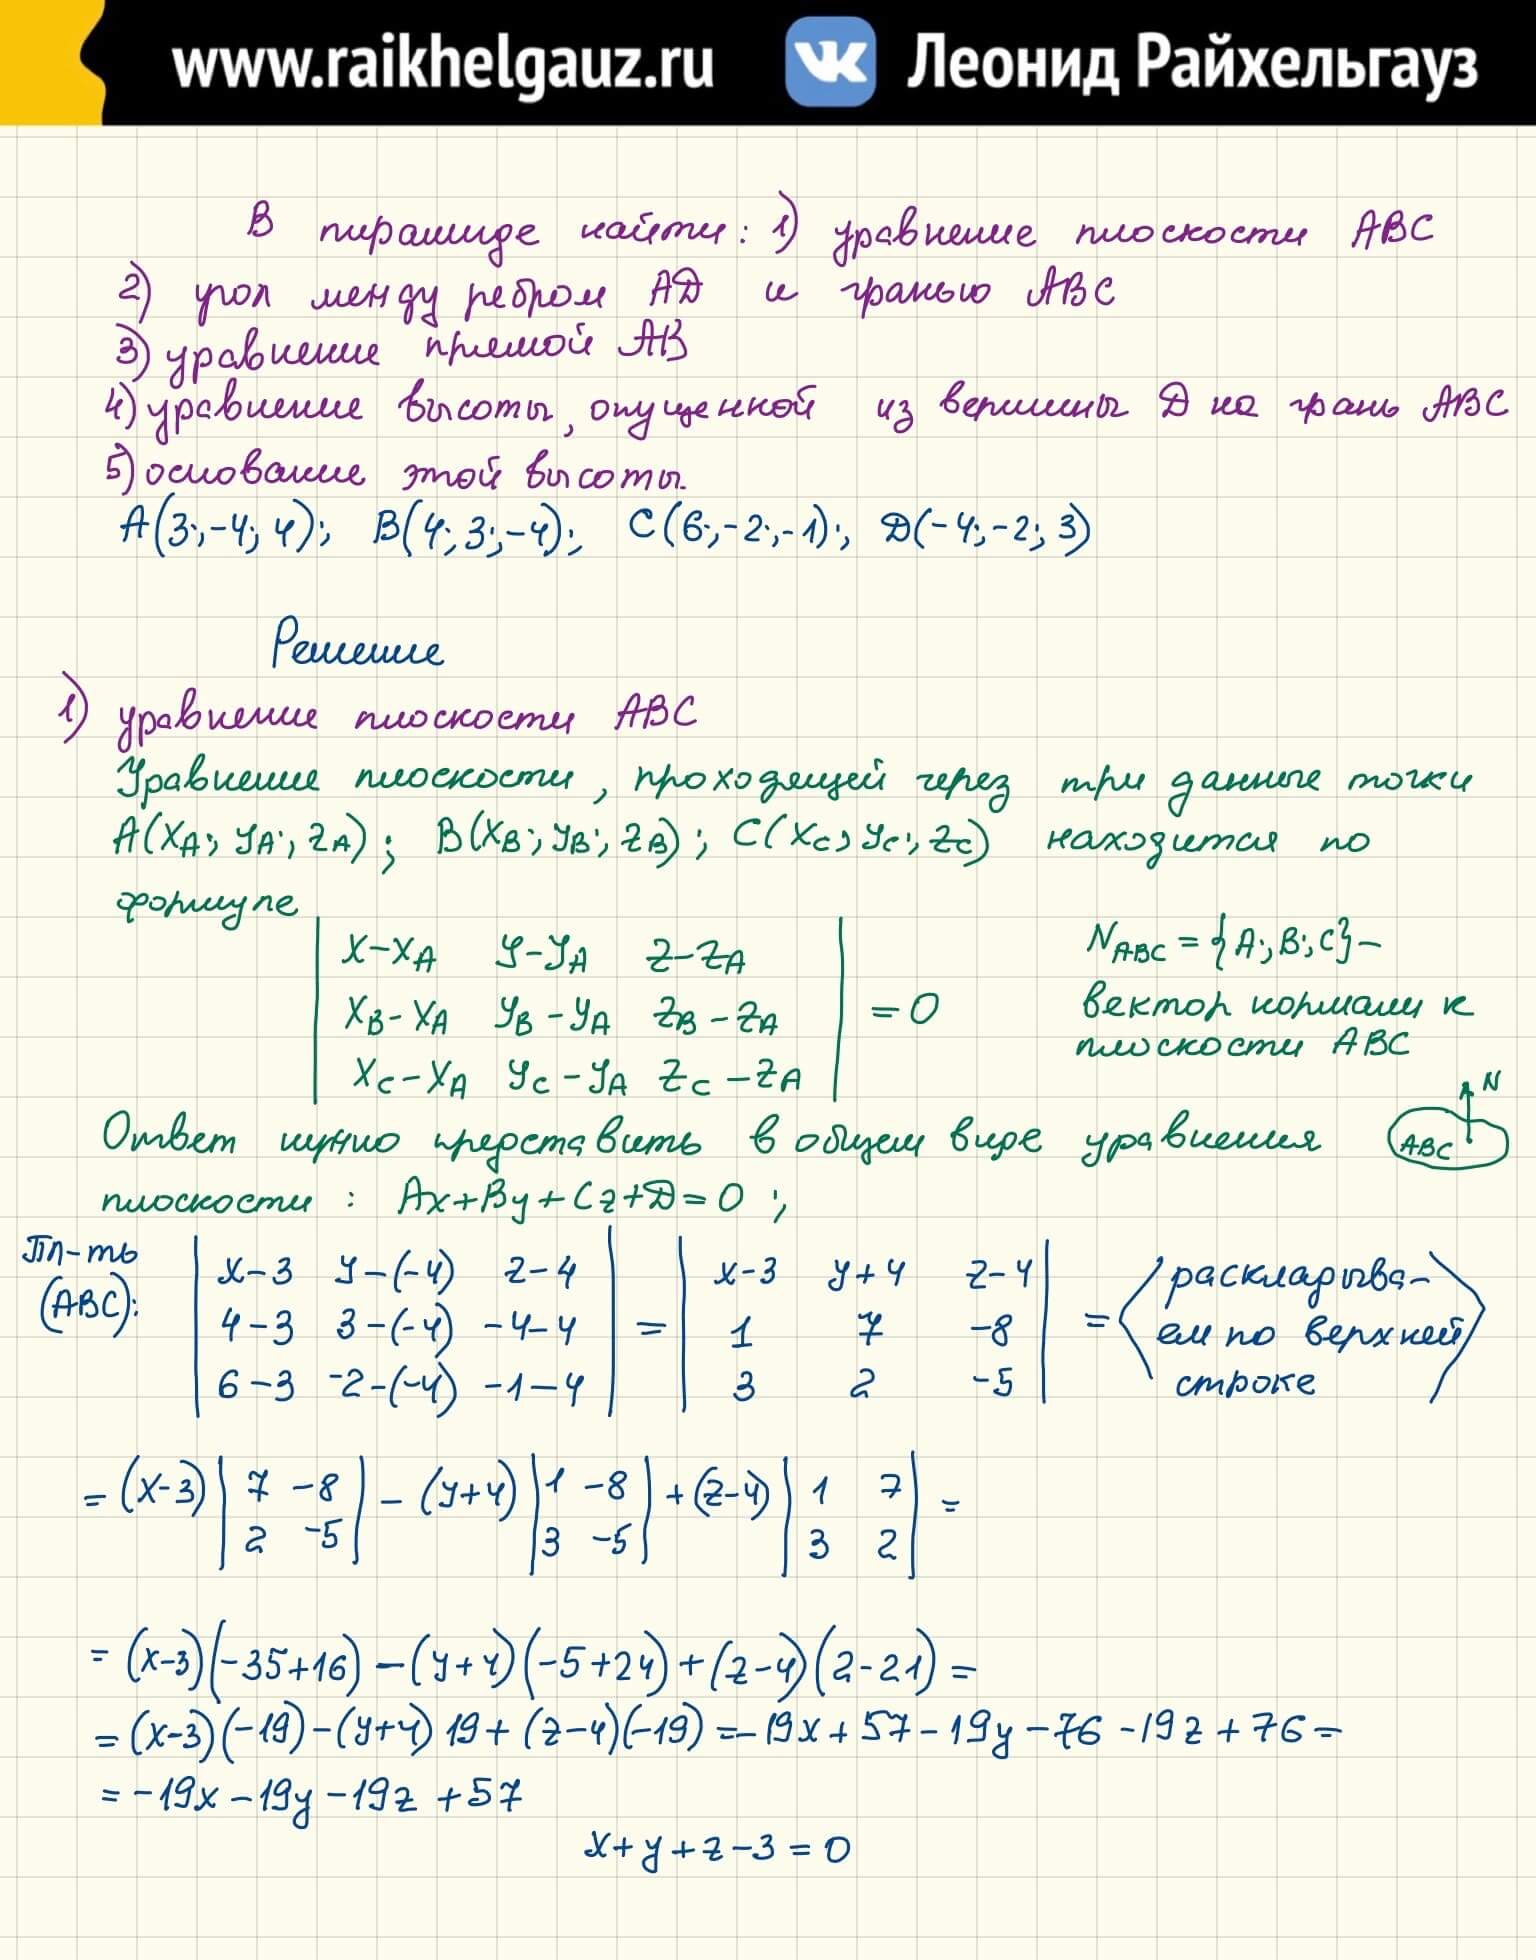 www.raikhelgauz.ru Леонид Райхельгауз
В пирамиде найти: 1) уравнение плоскости ABC
2) угол между ребром AD и гранью ABC
3) уравнение прямой AB
4) уравнение высоты, опущенной из вершины D на грань ABC
5) основание этой высоты.
A(3;-4;4); B(4;3;-4); C(6;-2;-1); D(-4;-2;3)
Решение
1) уравнение плоскости ABC
Уравнение плоскости, проходящей через три данные точки
A(xA; yA; zA); B(xB; yB; zB); C(xC; yC; zC) находится по
формуле
| x-xA y-yA z-zA |
| xB-xA yB-yA zB-zA | = 0
| xC-xA yC-yA zC-zA |
N ABC = {A; B; C} –
вектор нормали к
плоскости ABC
N
ABC
Ответ нужно представить в общем виде уравнения
плоскости: Ax+By+Cz+D=0;
Пл-ть
(ABC):
| x-3 y-(-4) z-4 | | x-3 y+4 z-4 | раскладыва-
| 4-3 3-(-4) -4-4 | = | 1 7 -8 | = < ем по верхней >
| 6-3 -2-(-4) -1-4 | | 3 2 -5 | строке
= (x-3) | 7 -8 | - (y+4) | 1 -8 | + (z-4) | 1 7 | =
| 2 -5 | | 3 -5 | | 3 2 |
= (x-3)(-35+16) - (y+4)(-5+24) + (z-4)(2-21) =
= (x-3)(-19) - (y+4) 19 + (z-4)(-19) = -19x + 57 - 19y - 76 - 19z + 76 =
= -19x - 19y - 19z + 57
x + y + z - 3 = 0